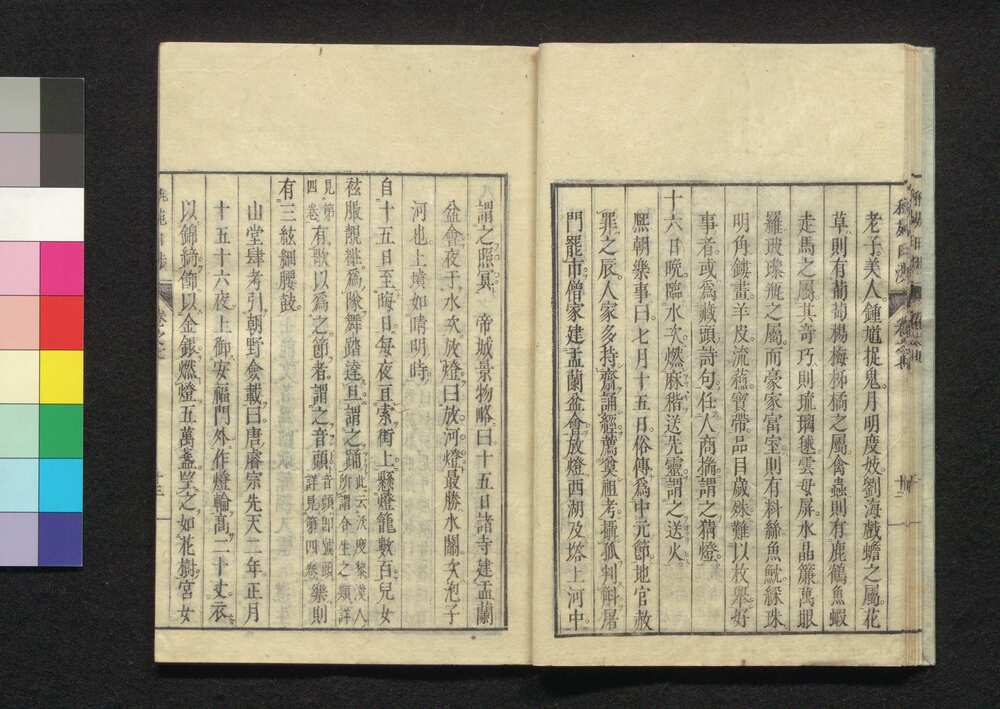 老子美人鍾馗捉鬼月明度妓劉海戲蟾之屬花
草則有葡萄楊梅柿橘之屬禽蟲則有鹿鶴魚蝦
走馬之屬其奇巧則琉璃毬雲母屏水晶簾萬眼
羅玻瓈瓶之屬而豪家富室則有料絲魚魫綵珠
明角鏤畫羊皮流蘇寶帶品目歲殊難以枚舉好
事者或爲藏頭詩句任人商揣謂之猜燈
十六日晩臨水次燃麻稭送先靈謂之送火
熙朝樂事曰七月十五日俗傳爲中元節地官赦
罪之辰人家多持齋誦經薦奠祖考攝孤判斛屠
門罷市僧家建盂蘭盆會放燈西湖及塔上河中
謂之照冥 帝城景物略曰十五日諸寺建盂蘭
盆會夜于水次放燈曰放河燈最勝水關次泡子
河也上墳如晴明時
自十五日至晦日每夜亘索街上懸燈籠數百兒女
袨服靚粧爲隊舞踏達旦謂之踊此云沃度黎漢人
所謂合生之類詳
見第
四卷有歌以爲之節者謂之音頭音頭卽號頭
詳見第四卷樂則
有三絃細腰鼓
山堂肆考引朝野僉載曰唐睿宗先天二年正月
十五十六夜上御安福門外作燈輪高二十丈衣
以錦綺飾以金銀燃燈五萬盞望之如花樹宮女